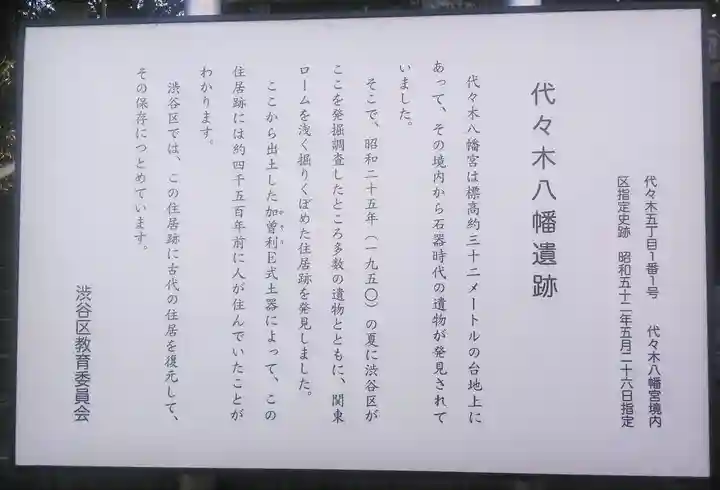 代々木五丁目1番1号　代々木八幡宮境内
区指定史跡　昭和五十二年五月二十六日指定
代々木八幡遺跡
代々木八幡宮は標高約三十二メートルの台地上に
あって、その境内から石器時代の遺物が発見されて
いました。
そこで、昭和二十五年（一九五〇）の夏に渋谷区が
ここを発掘調査したところ多数の遺物とともに、関東
ロームを浅く掘りくぼめた住居跡を発見しました。
ここから出土した加曽利E式土器によって、この
住居跡には約四千五百年前に人が住んでいたことが
わかります。
渋谷区では、この住居跡に古代の住居を復元して、
その保存につとめています。
渋谷区教育委員会